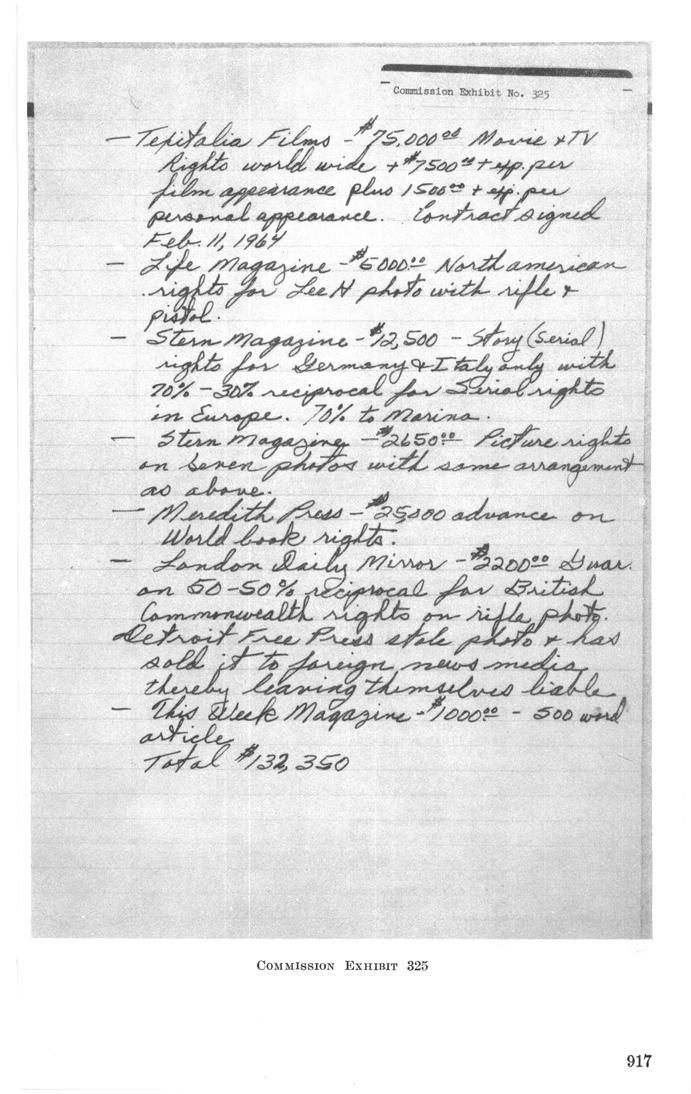 Commission Exhibit No. 325
— Tepitalia Films - $75,000.00 Movie & TV
Rights world wide + $7500.00 + exp. per
film appearance plus 1500.00 + exp. per
personal appearance. Contract signed
Feb. 11, 1964
— Life Magazine - $5000.00 North american
rights for Lee H photo with rifle &
pistol.
— Stern Magazine - $12,500 - Story (Serial)
rights for Germany & Italy only with
70% - 30% reciprocal for Serial rights
in Europe. 70% to Marina.
— Stern Magazine - $2650.00 Picture rights
on seven photos with same arrangement
as above.
— Meredith Press - $25,000 advance on
World book rights.
— London Daily Mirror - $2200.00 Guar.
on 50-50% reciprocal for British
Commonwealth rights on rifle photo.
Detroit Free Press stole photo & has
sold it to foreign news media,
thereby leaving themselves liable
— This Week Magazine - $1000.00 - 500 word
article
Total $132,350
COMMISSION EXHIBIT 325
917